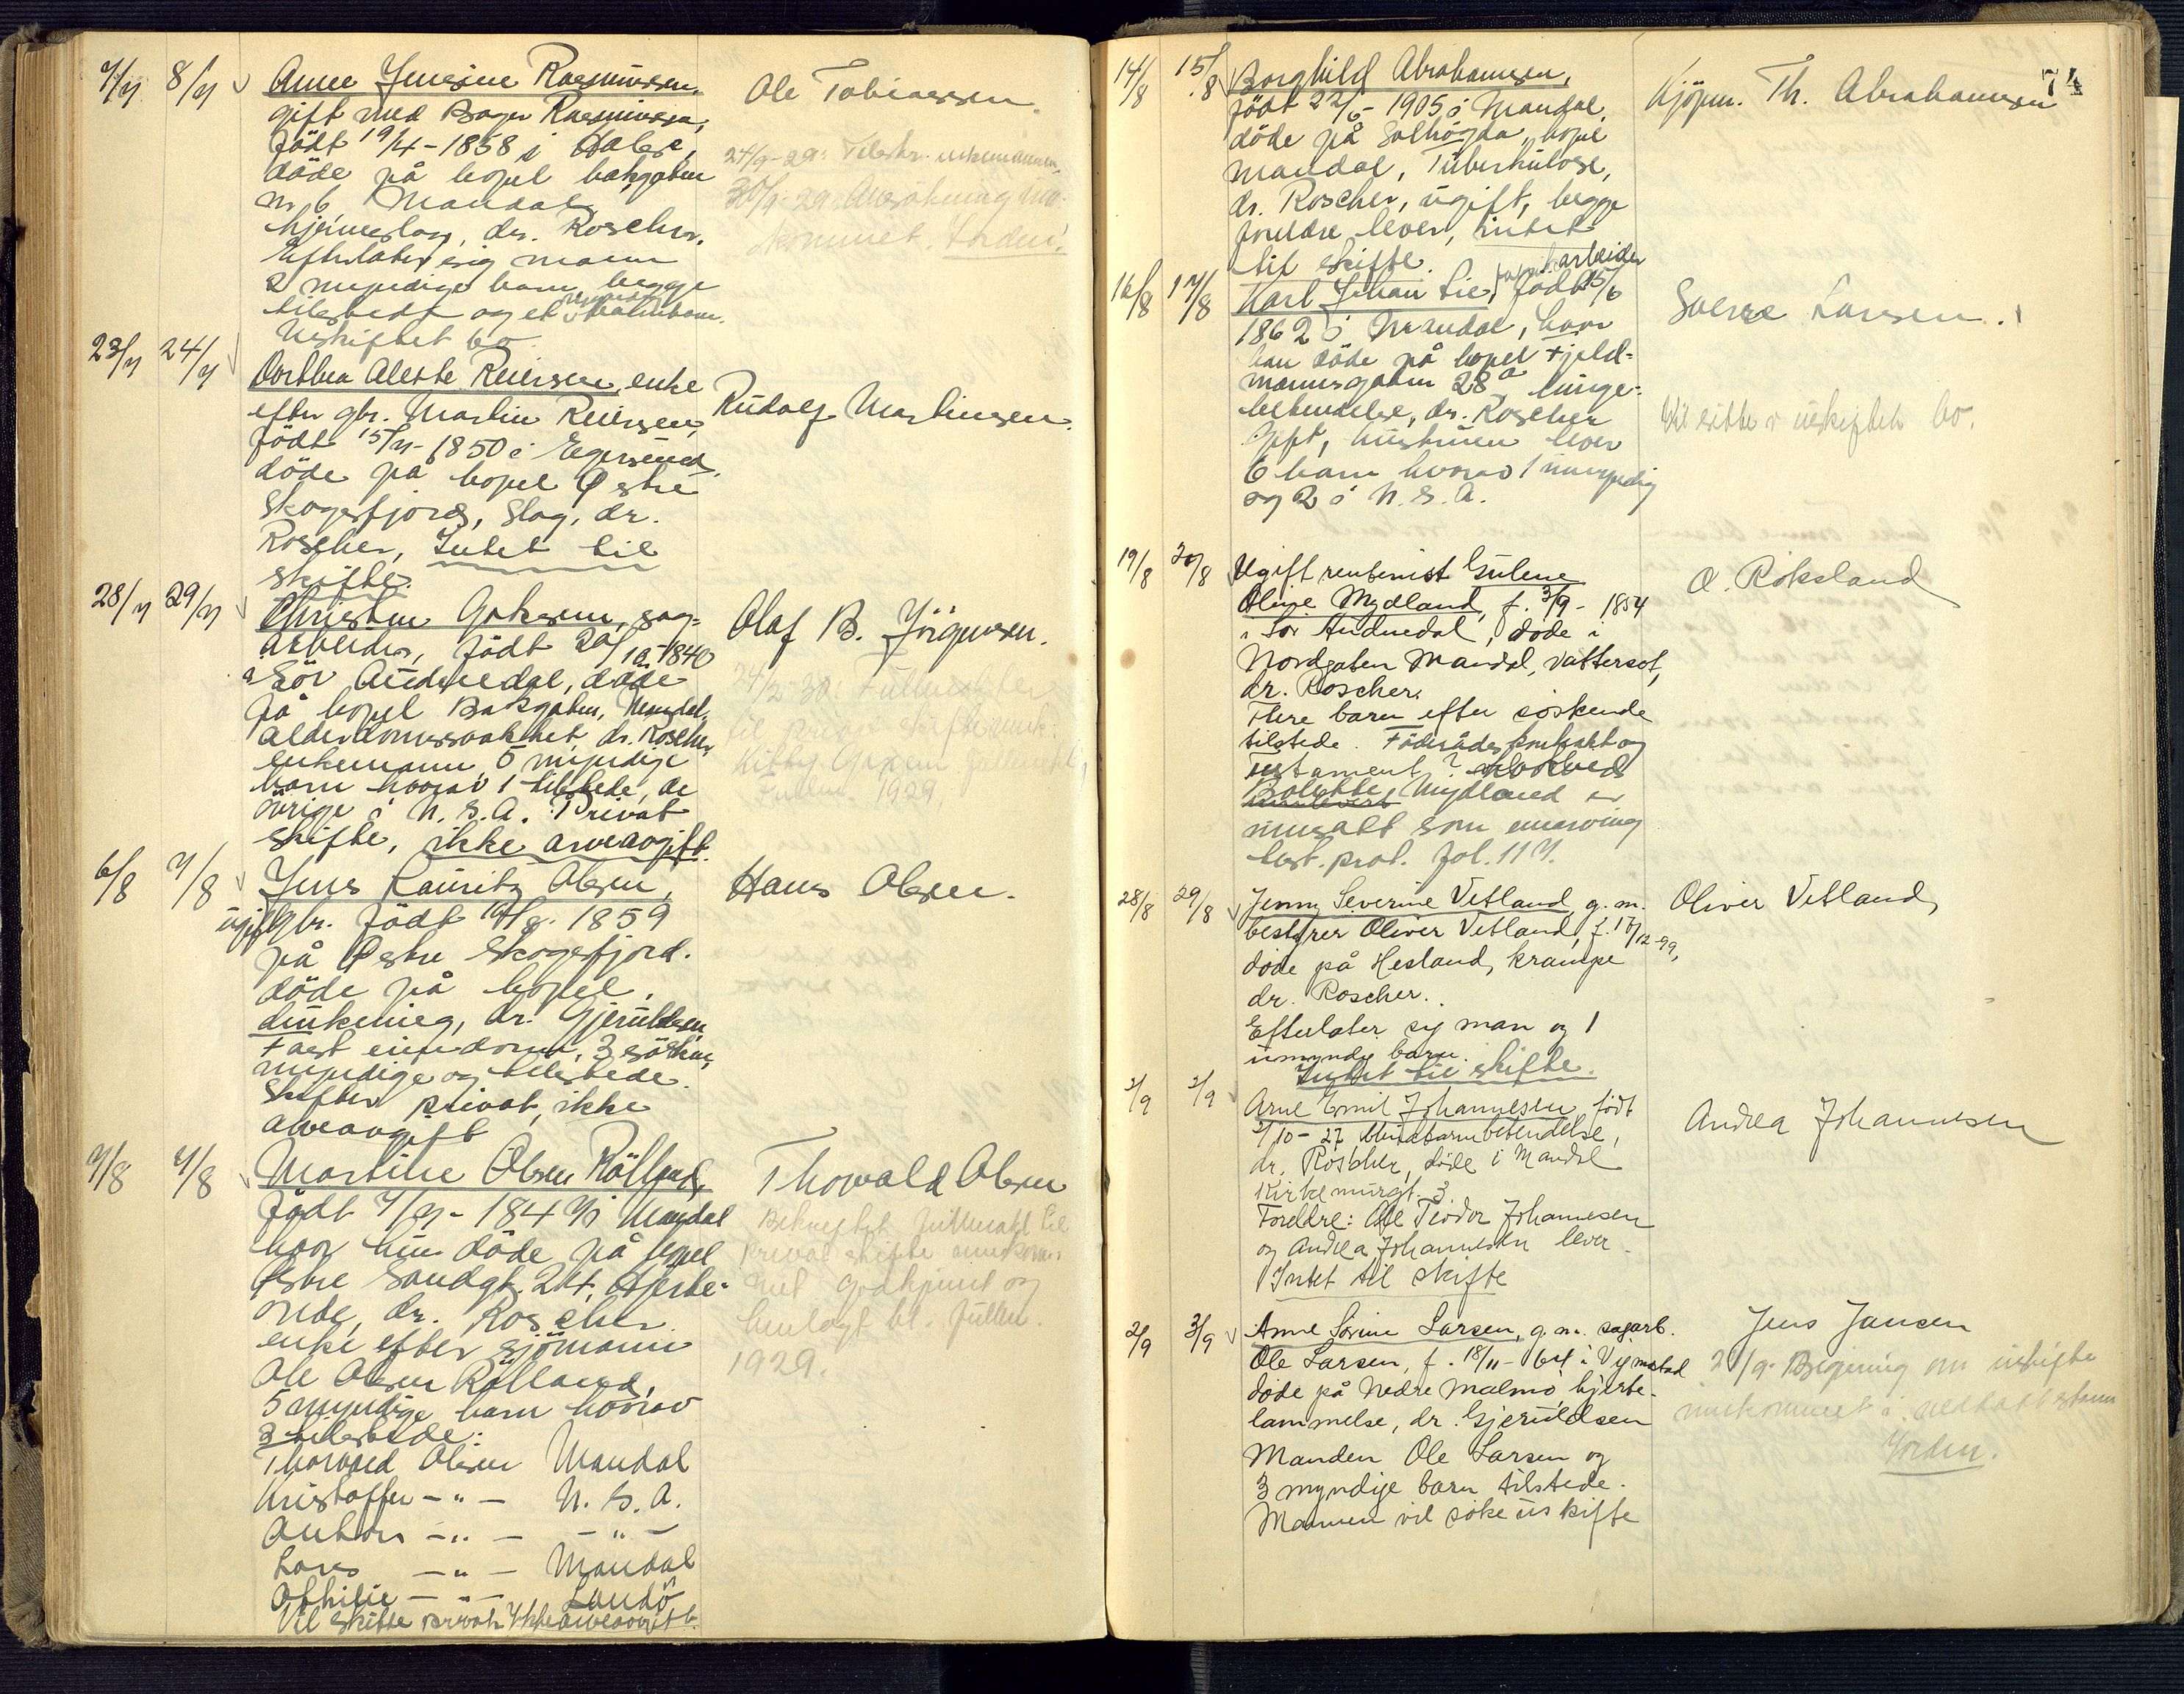 7/7 8/7 Anne Jensine Rasmussen, Ole Tobiassen.
gift med Bager Rasmussen,
født 19/4-1858 i
døde på bopel bakgaten
nr 6, Mandal
hjerneslag, dr. Roscher.
Efterlater sig mann
2 myndige barn, begge
tilstede og et barnebarn.
Uskiftet bo
24/9-29:
30/9-29 Ansökning inn-
kommet. Iorden!
23/7 24/7 Dorthea Reiersen, enke Rudolf Martinsen.
efter gbr. Martin Reiersen,
födt 15/7-1850 i Egersund,
döde på bopel Østre
Skogsfjord, Slag, dr.
Roscher, Intet til
skifte.
28/7 29/7 sag- Olaf B. Jörgensen.
arbeider, födt 20/10-1840
i Sör Audnedal, döde
på bopel Bakgaten, Mandal,
alderdomssvakhet, dr. Roscher
enkemann, 5 myndige
barn hvorav 1 tilstede, de
övrige i N. S. A. Privat
skifte, ikke arveavgift.
6/8 7/8 Jens Lauritz Olsen, Hans Olsen.
ugift gbr. födt 1859
på Østre Skogsfjord.
döde på bopel,
drukning, dr. Gjeruldsen
Fast eiendom, 3 söskene
myndige og tilstede.
Skifter privat, ikke
arveavgift
7/8 7/8 Martine Olsen Rölland, Thorvald Olsen
födt 7/7-1847 i Mandal
hvor hun döde på bopel
Østre Sandgt. 24, Hjerte-
onde, dr. Roscher
enke efter sjömann
Ole Olsen Rölland,
5 myndige barn hvorav
3 tilstede:
Thorvald Olsen Mandal
Kristoffer — " — N. S. A.
Anton — " — — " —
Lars — " — Mandal
Othilie — " — Landö
Vil skifte privat Ikke arveavgift.
Bekreftet fullmakt til
privat skifte innkom-
met godkjent og
henlagt bl. fullm.
1929.
74
14/8 15/8 Borghild Abrahamsen, Kjöpm. Th. Abrahamsen
födt 22/6-1905 i Mandal,
döde på Solhögda, bopel
Mandal, Tuberkulose,
dr. Roscher, ugift, begge
foreldre lever, intet
til skifte.
16/8 17/8 Karl Johan Lie, arbeider födt 15/6 Sverre Larsen.
1862 i Mandal, hvor
han döde på bopel Fjeld-
mannsgaten 28a lunge-
betendelse, dr. Roscher
Gift, hustruen lever
6 barn hvorav 1 umyndig
og 2 i N. S. A.
Vil sitte i uskiftet bo.
19/8 20/8 Ugift rentenist Gulene O. Röksland
Oline Mydland, f. 3/9-1854
i Sör Audnedal, döde i
Nordgaten Mandal, vattersot,
dr. Roscher.
Flere barn efter söskende
tilstede. Föderådskontrakt og
Testament?
Bolette Mydland er
innsatt som enearving
test. prot. fol. 117.
28/8 29/8 Jenny Severine Vetland, g. m. Oliver Vetland
bestyrer Oliver Vetland, f. 17/12-99,
döde på Hesland, krampe
dr. Roscher.
Efterlater sig man og 1
umyndig barn.
Intet til skifte.
2/9 2/9 Arne Emil Johannesen, födt Andrea Johannesen
2/10-27 Blindtarmbetendelse,
dr. Roscher, döde i Mandal
Kirkemurgt. 3.
Foreldre: Ole Teodor Johannesen
og Andrea Johannesen lever.
Intet til skifte
2/9 3/9 Anne Sorine Larsen, g. m. sagarb. Jens Jansen
Ole Larsen, f. 18/11-64 i Vigmostad
döde på Nedre Malmö, hjerte-
lammelse, dr. Gjeruldsen
Manden Ole Larsen og
3 myndige barn tilstede.
Mannen vil söke uskifte
Begjæring om uskifte
innkommet i stand
Iorden.